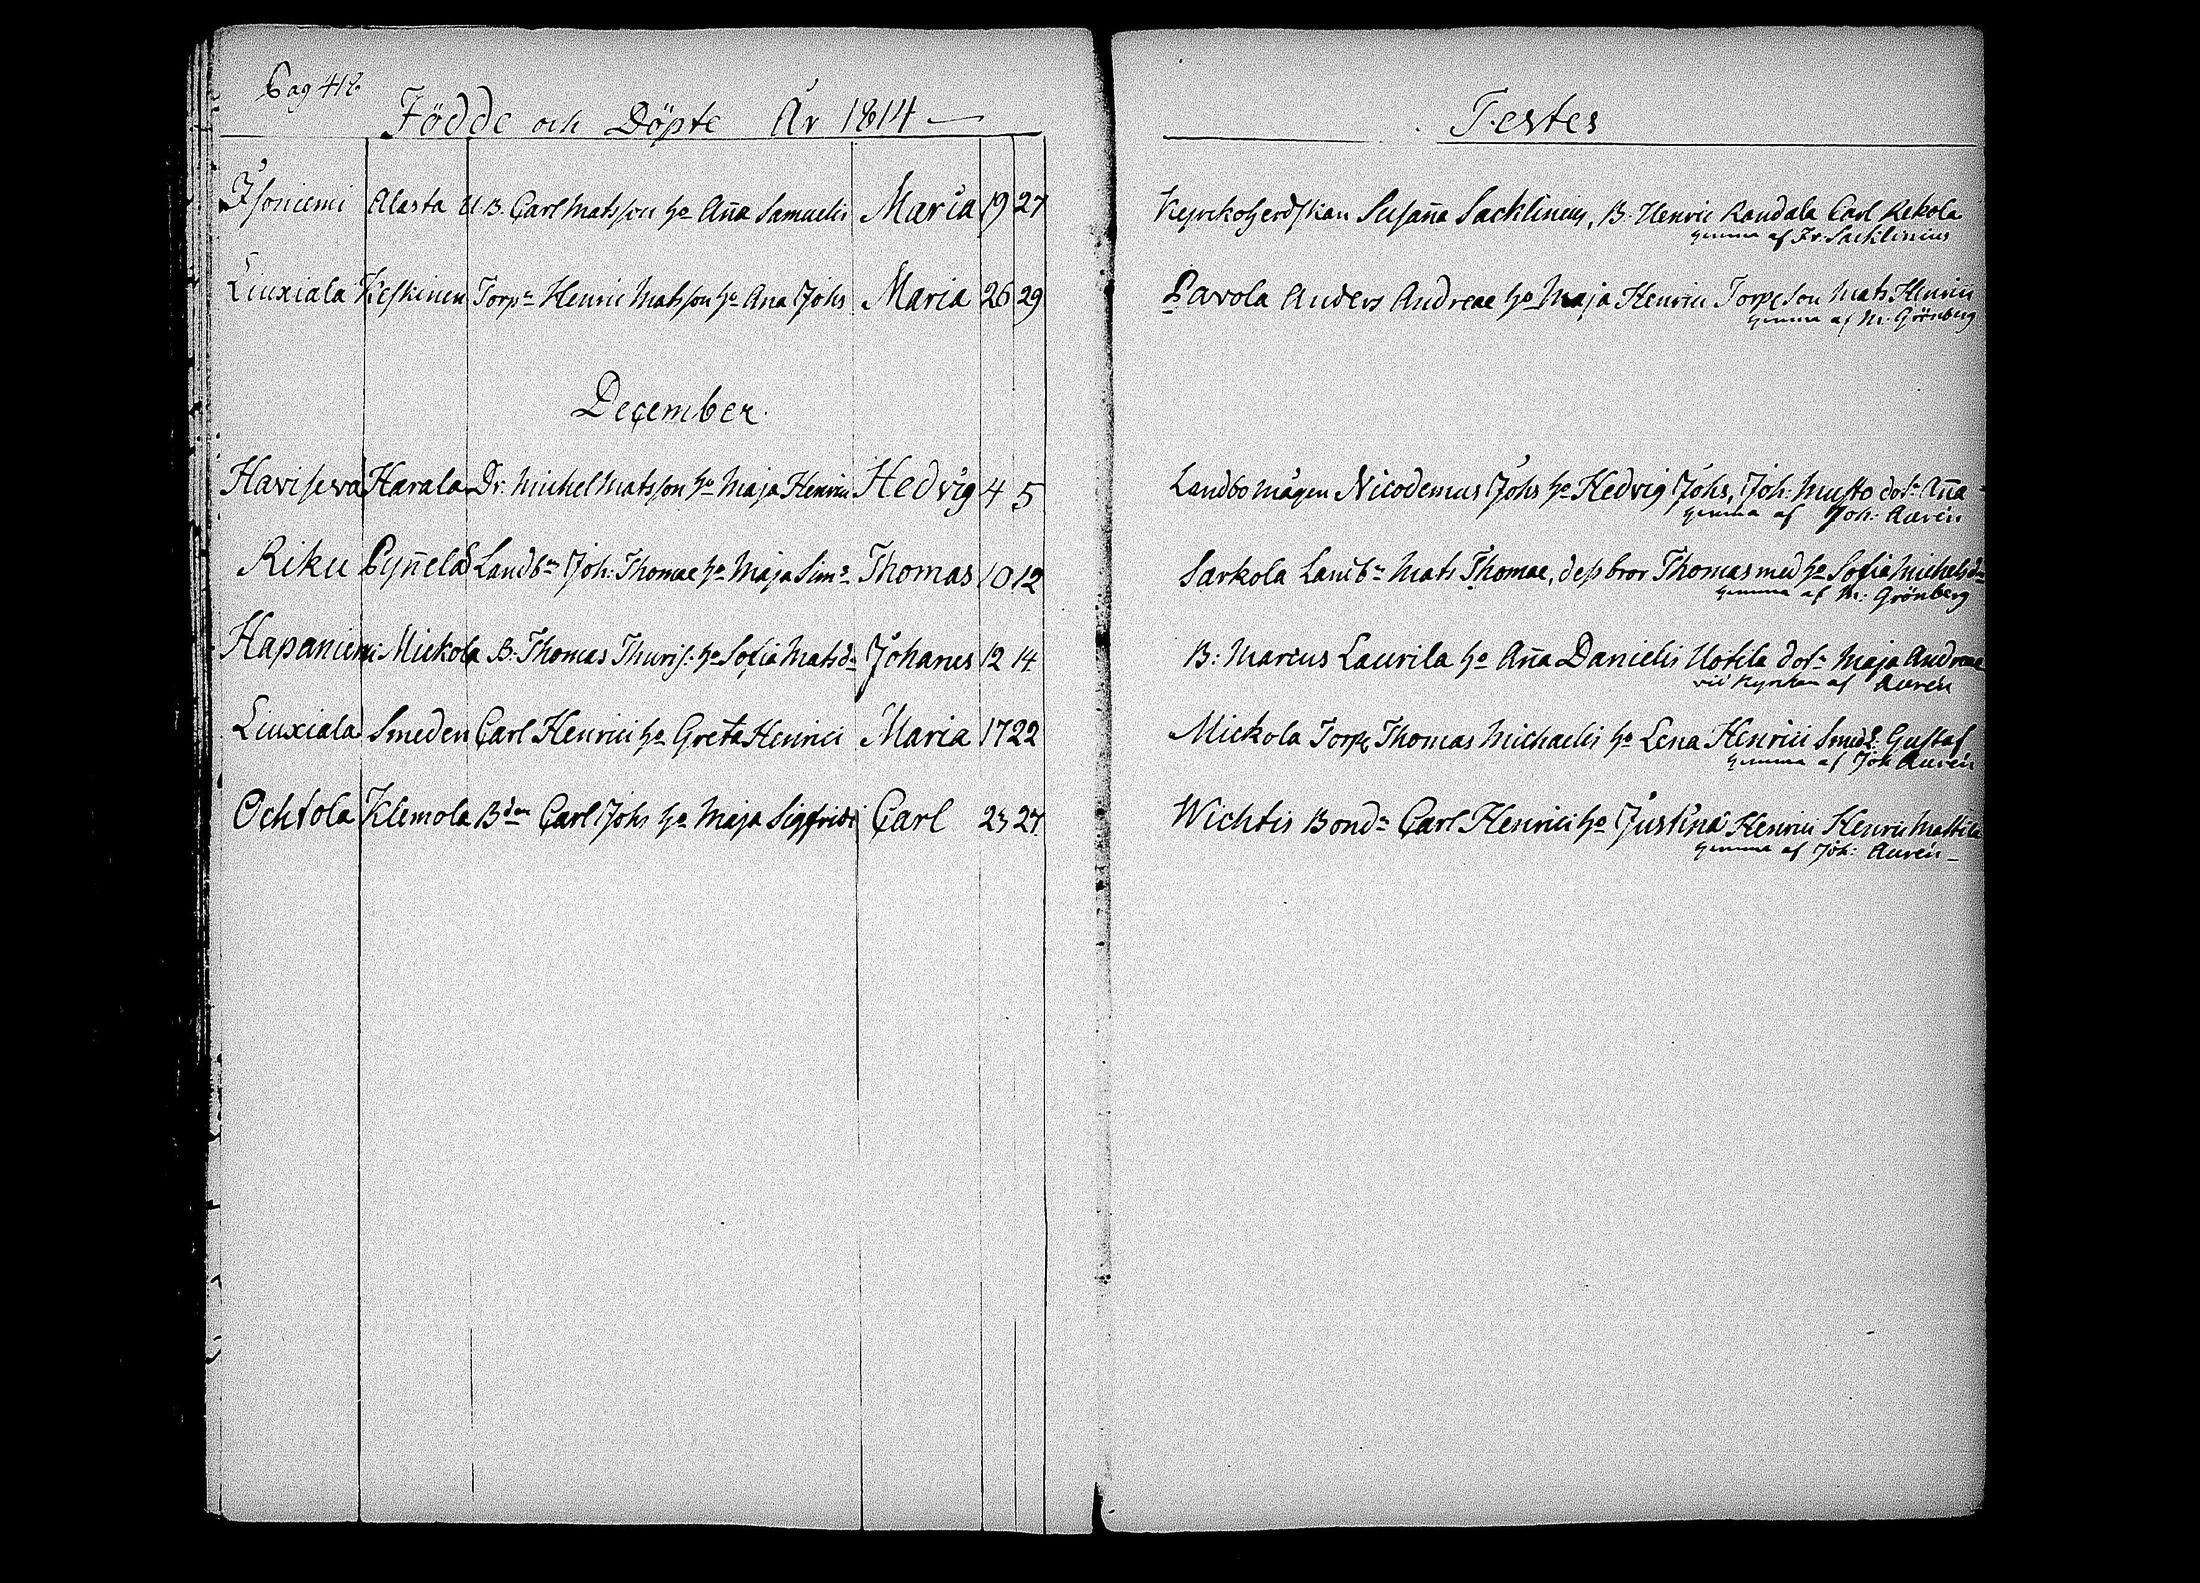 Pag 418
Födde och Döpte År 1814
Isoniemi Alasta U.B. Carl Matsson ho Aña Samuelis Maria 19 27
Liuxiala Keskinen Torp Henric Matsson ho Ana Johs Maria 26 29
December.
Haviseva Harala Dr. Michel Matsson ho Maja Henrici Hedvig 4 5
Riku Pyñelä Landb Joh: Thomae ho Maja Sim Thomas 10 12
Hapaniemi Mickola B: Thomas Thuris: ho Sofia Matsd Johanes 12 14
Liuxiala Smeden Carl Henrici ho Greta Henrici Maria 17 22
Ochtola Klemola Bden Carl Johs ho Maja Sigfridi Carl 23 27
Testes
Kyrckoherdskan Susaña Sacklinius, B. Henric Randala Carl Rekola
hemma af Fr Sacklinius
Pavola Anders Andreae ho Maja Henrici Torpe Son Mats Henrici
hemma af M. Grönberg
Landbo mågen Nicodemus Johs ho Hedvig Johs, Joh: Musto dotr Aña
hemma af Joh: Auren
Sarkola Landb Mats Thomae, dess bror Thomas med ho Sofia Michelsd
hemma af M: Grönberg
B: Marcus Laurila ho Aña Danielis Uotila dotr Maja Andreae
vid Kyrckan af Auren
Mickola Torp Thomas Michaelis ho Lena Henrici Smed L: Gustaf
hemma af Joh Auren
Wichtis Bond Carl Henrici ho Justina Henrici Henric Mattila
hemma af Joh: Auren